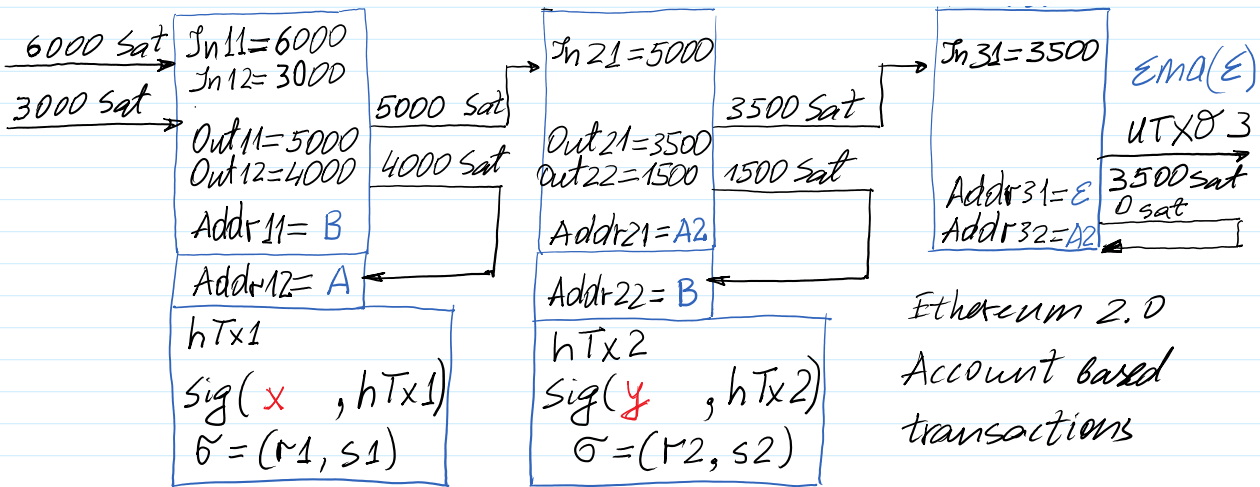 6000 Sat
3000 Sat
In11=6000
In12=3000
Out11=5000
Out12=4000
Addr11= B
Addr12= A
hTx1
Sig( x , hTx1)
σ=(r1, s1)
5000 Sat
4000 Sat
In21=5000
Out21=3500
Out22=1500
Addr21=A2
Addr22= B
hTx2
Sig( y , hTx2)
σ=(r2, s2)
3500 Sat
1500 Sat
In31=3500
Addr31=E
Addr32=A2
Ema(E)
UTXO 3
3500 sat
0 sat
Ethereum 2.0
Account based
transactions